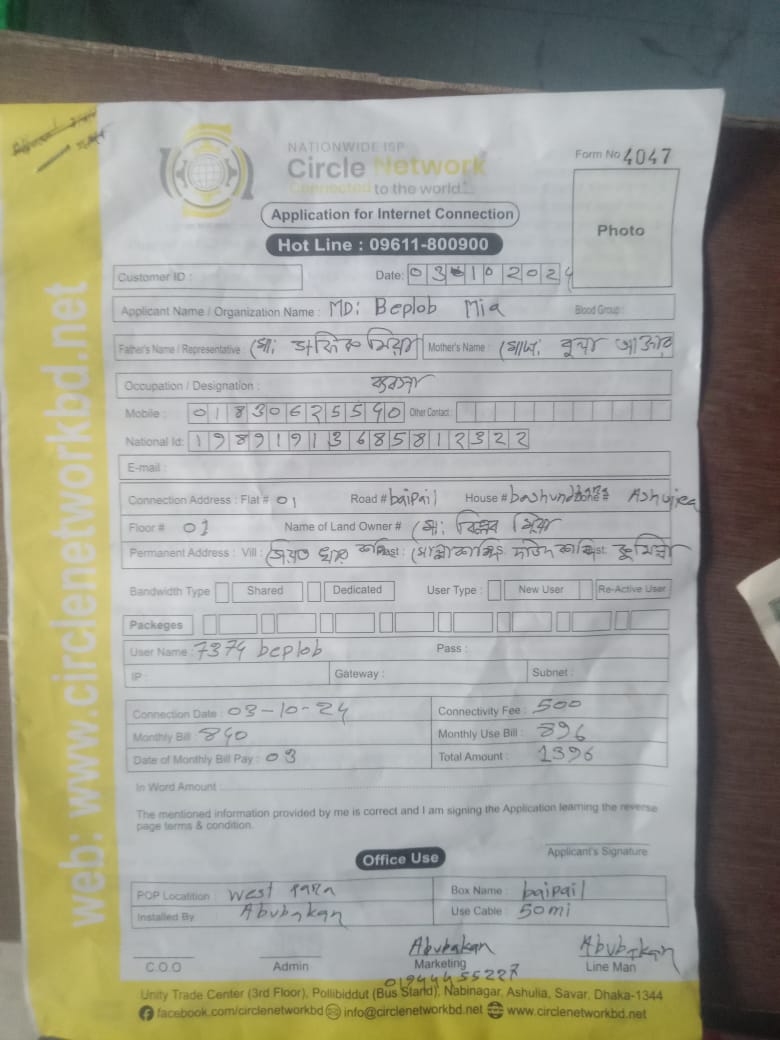 NATIONWIDE ISP
Circle Network
Connected to the world...
Form No 4047
Photo
Application for Internet Connection
Hot Line : 09611-800900
Customer ID :
Date: 03-10 2024
Applicant Name / Organization Name : MD: Beplob Mia Blood Group :
Father's Name / Representative : মিয়া Mother's Name :
Occupation / Designation :
Mobile : 01830625540 Other Contact:
National Id: 19891913685812322
E-mail :
Connection Address : Flat # 01 Road # baipail House # bashundhara Zone # Ashujea
Floor # 01 Name of Land Owner # মো: বিপ্লব মিয়া
Permanent Address : Vill :
Bandwidth Type Shared Dedicated User Type : New User Re-Active User
Packeges
User Name : 7374 beplob Pass :
IP : Gateway : Subnet :
Connection Date : 03-10-24 Connectivity Fee : 500
Monthly Bill : 840 Monthly Use Bill : 896
Date of Monthly Bill Pay : 03 Total Amount : 1396
In Word Amount
The mentioned information provided by me is correct and I am signing the Application learning the reverse
page terms & condition.
Applicant's Signature
Office Use
POP Locatition : West para Box Name : baipail
Installed By Abubakan Use Cable : 50mi
Abubakan Abubakan
C.O.O Admin Marketing Line Man
01944455227
Unity Trade Center (3rd Floor), Pollibiddut (Bus Stand), Nabinagar, Ashulia, Savar, Dhaka-1344
facebook.com/circlenetworkbd info@circlenetworkbd.net www.circlenetworkbd.net
web: www.circlenetworkbd.net